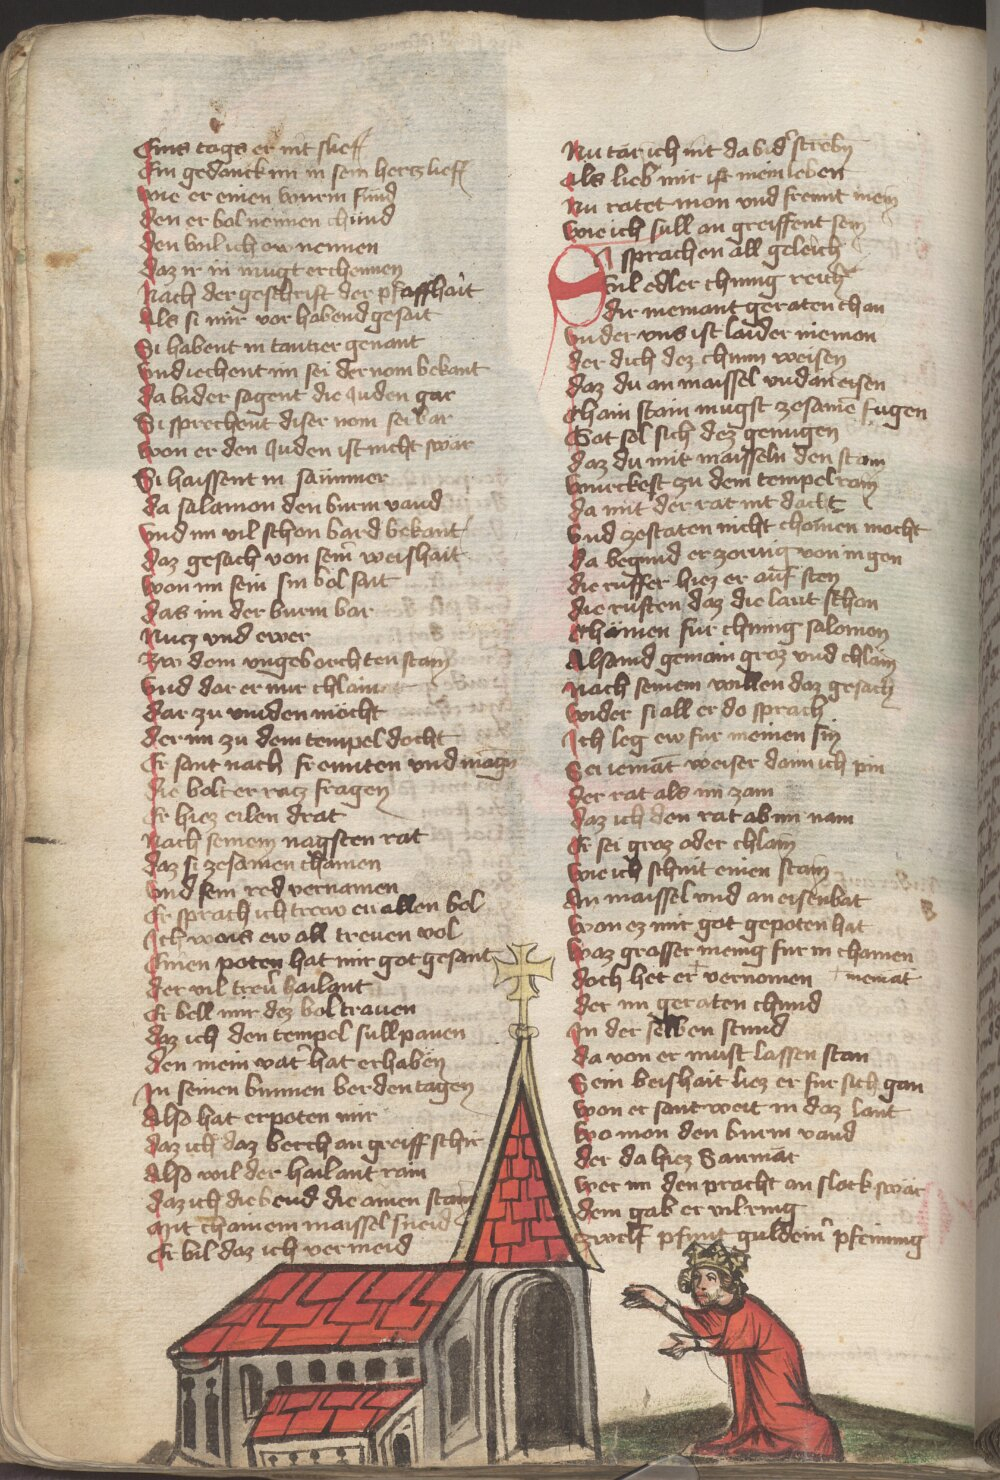 Eins tags er nit slieff
Ein gedanck im in sein hertz lieff
wie er einen wurm fund
den er wol nennen chund
den wil ich ew nennen
daz ir in mugt erchennen
Nach der geschrift der pfaffhait
Als si mir vor habend gesait
Si habent in tantier genant
Vnd iechent im sei der nom bekant
da wider sagent die Juden gar
Si sprechent diser nom sei war
won er den Juden ist nicht swär
Si haissent in saimmer
da salamon den wurm vand
vnd im vil schon ward bekant
daz gesach von sein weishait
won im sein sin wol sait
das im der wurm war
Nucz vnd ewer
zw dem vngeworchten stain
Vnd dar er nur chlain
dar zu vinden möcht
der im zu dem tempel docht
Er sant nach freunten vnd magen
die wolt er racz fragen
Er hiez eilen drat
Nach seinem nagsten rat
daz si zesamen chamen
vnd sein red vernamen
Er sprach ich traw eu allen wol
Ich wais ew all treuen vol
Einen poten hat mir got gesant
der vil treu hailant
Er well mir dez wol trauen
daz ich den tempel sull pauen
den mein vater hat erhaben
In seinen bunnen werden tagen
Also hat er poten mir
daz ich daz werch an greiff schir
Also wil der hailant rain
daz ich die wend die ainen stain
mit chainem maissel sneid
Er wil daz ich vermeid
Nu tar ich nit da wider streben
Als lieb mir ist mein leben
Nu ratet mon vnd freunt mein
wie ich sull an greiffent sein
Si sprachen all geleich
Vil edler chunig reich
dir niemant geraten chan
Vnder vns ist laider niemon
der dich dez chunn weisen
daz du an maissel vnd an eisen
Chain stain mugst zesame fugen
Got sol sich dez genugen
daz du mit maisseln den stain
wurckest zu dem tempel rain
da mit der rat nit dacht
Vnd zestaten nicht chomen mocht
da begund er zornig von in gen
die ruffer hiez er auf sten
die ruften daz die laut schon
Chämen für chunig salomon
Alsamd gemain groz vnd chlain
Nach seinem willen daz gesach
wider si all er do sprach
Ich leg ew fur meinen sin
Sei iemat weiser dann ich pin
der rat als im zam
daz ich den rat ab im nam
Er sei groz oder chlain
wie ich schnit einen stain
An maissel vnd an eisenwat
won ez mir got gepoten hat
waz grosser menig fur in chamen
doch het er vernomen niemat
der im geraten chund
In der selben stund
da von er must lassen stan
Sein weishait liez er fur sich gan
won er sant weit in daz lant
wo mon den wurm vand
der da hiez Sanmat
wer im den pracht an slack swär
dem gab er vil ring
zwelf pfunt guldein pfenning